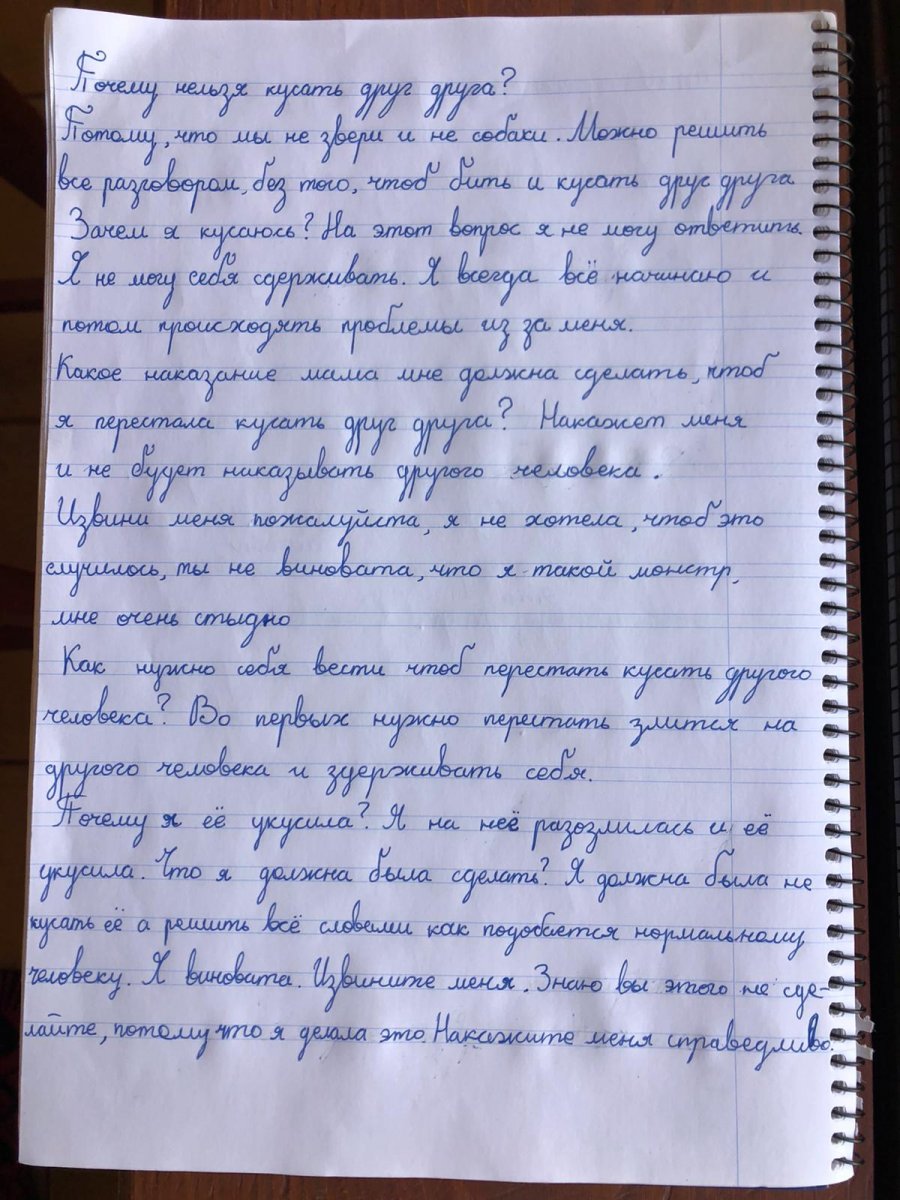 Почему нельзя кусать друг друга?
Потому, что мы не звери и не собаки. Можно решить
все разговором, без того, чтоб бить и кусать друг друга.
Зачем я кусаюсь? На этот вопрос я не могу ответить.
Я не могу себя сдерживать. Я всегда всё начинаю и
потом происходять проблемы из за меня.
Какое наказание мама мне должна сделать, чтоб
я перестала кусать друг друга? Накажет меня
и не будет наказывать другого человека.
Извини меня пожалуйста, я не хотела, чтоб это
случилось, ты не виновата, что я такой монстр,
мне очень стыдно
Как нужно себя вести чтоб перестать кусать другого
человека? Во первых нужно перестать злится на
другого человека и здерживать себя.
Почему я её укусила? Я на неё разозлилась и её
укусила. Что я должна была сделать? Я должна была не
кусать её а решить всё словами как подобается нормальному
человеку. Я виновата. Извините меня. Знаю вы этого не сде-
лайте, потому что я делала это. Накажите меня справедливо.